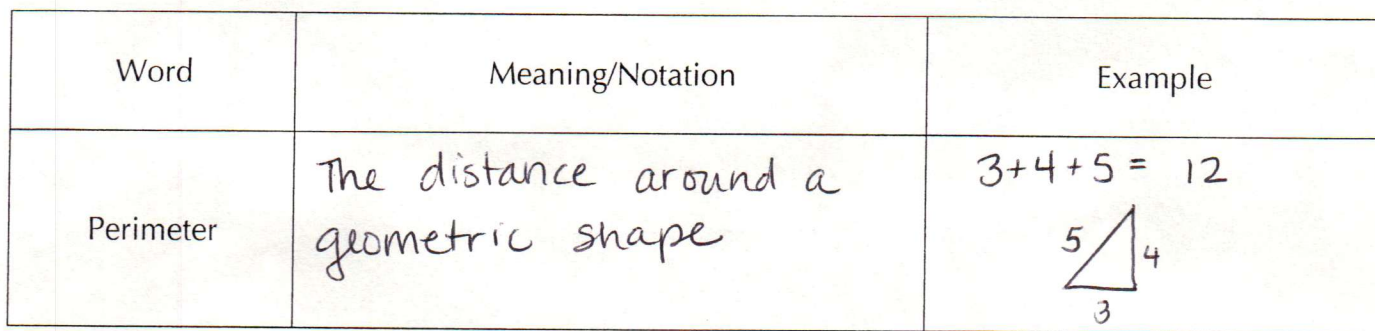 Word
Meaning/Notation
Example
Perimeter
The distance around a
geometric shape
3+4+5 = 12
5
4
3